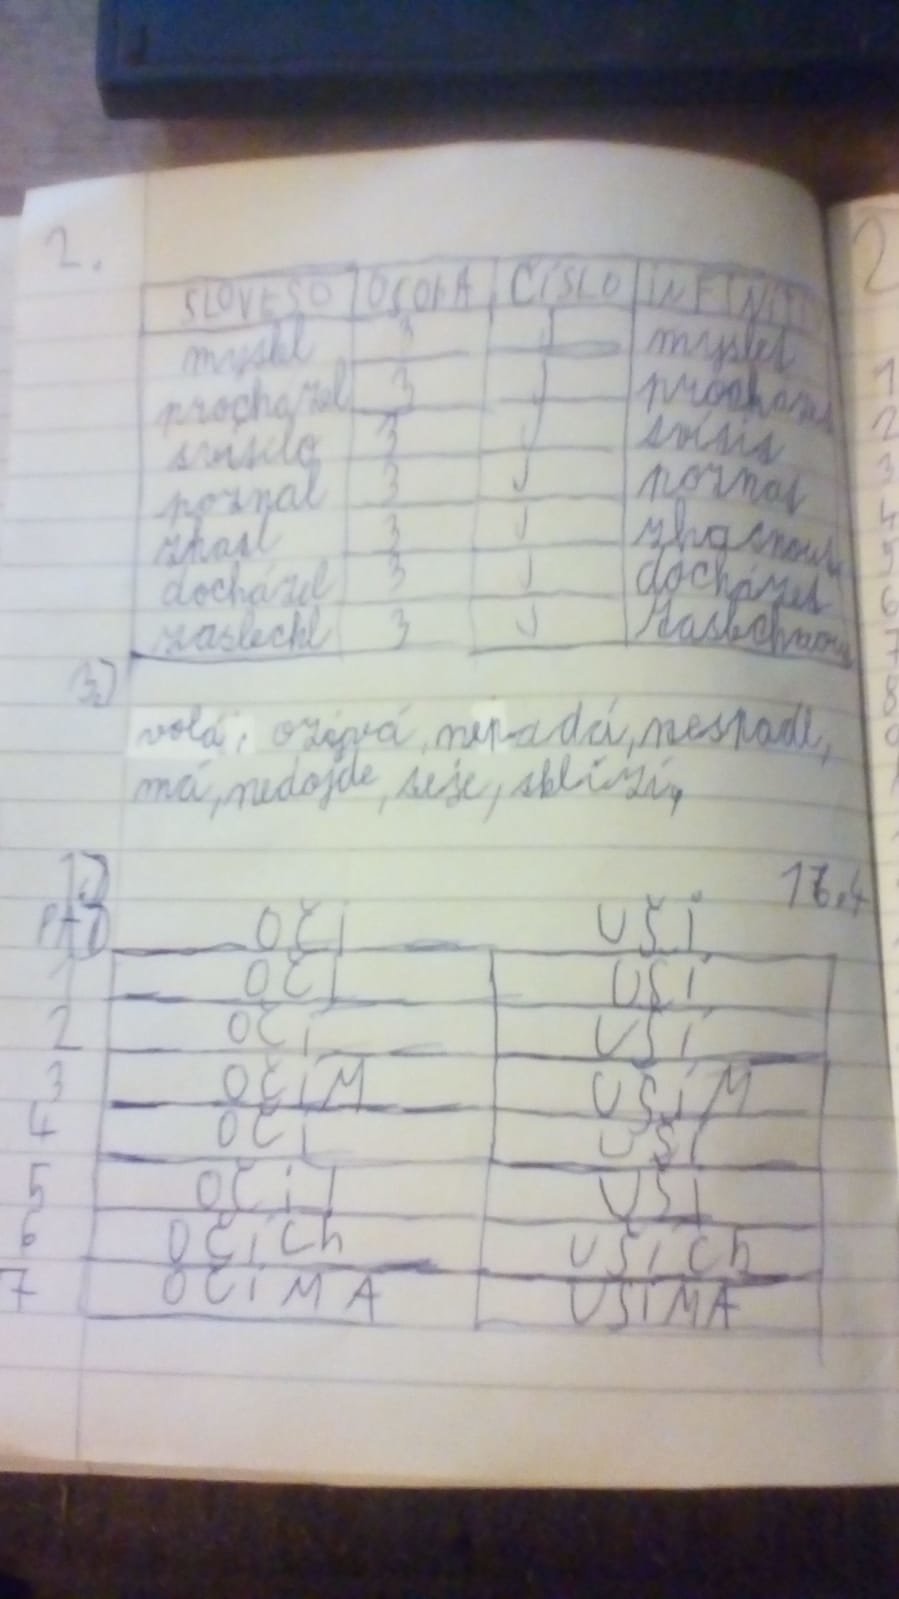 2.
SLOVESO OSOBA ČÍSLO INFINITI
myslel 3 J myslet
procházel 3 J procházet
sviselo 3 J
poznal 3 J poznat
zhasl 3 J zhasnout
docházel 3 J docházet
zaslechl 3 J zaslechnou
3.)
volá, ozývá, nepadá, nespadl,
má, nedojde, seje, sblíží,
1.)
PÁD OČI UŠI
1 OČI UŠI
2 OČÍ UŠÍ
3 OČÍM UŠÍM
4 OČI UŠI
5 OČI UŠI
6 OČÍCh UŠÍCh
7 OČIMA UŠIMA
2
1
2
3
4
5
6
7
8
9